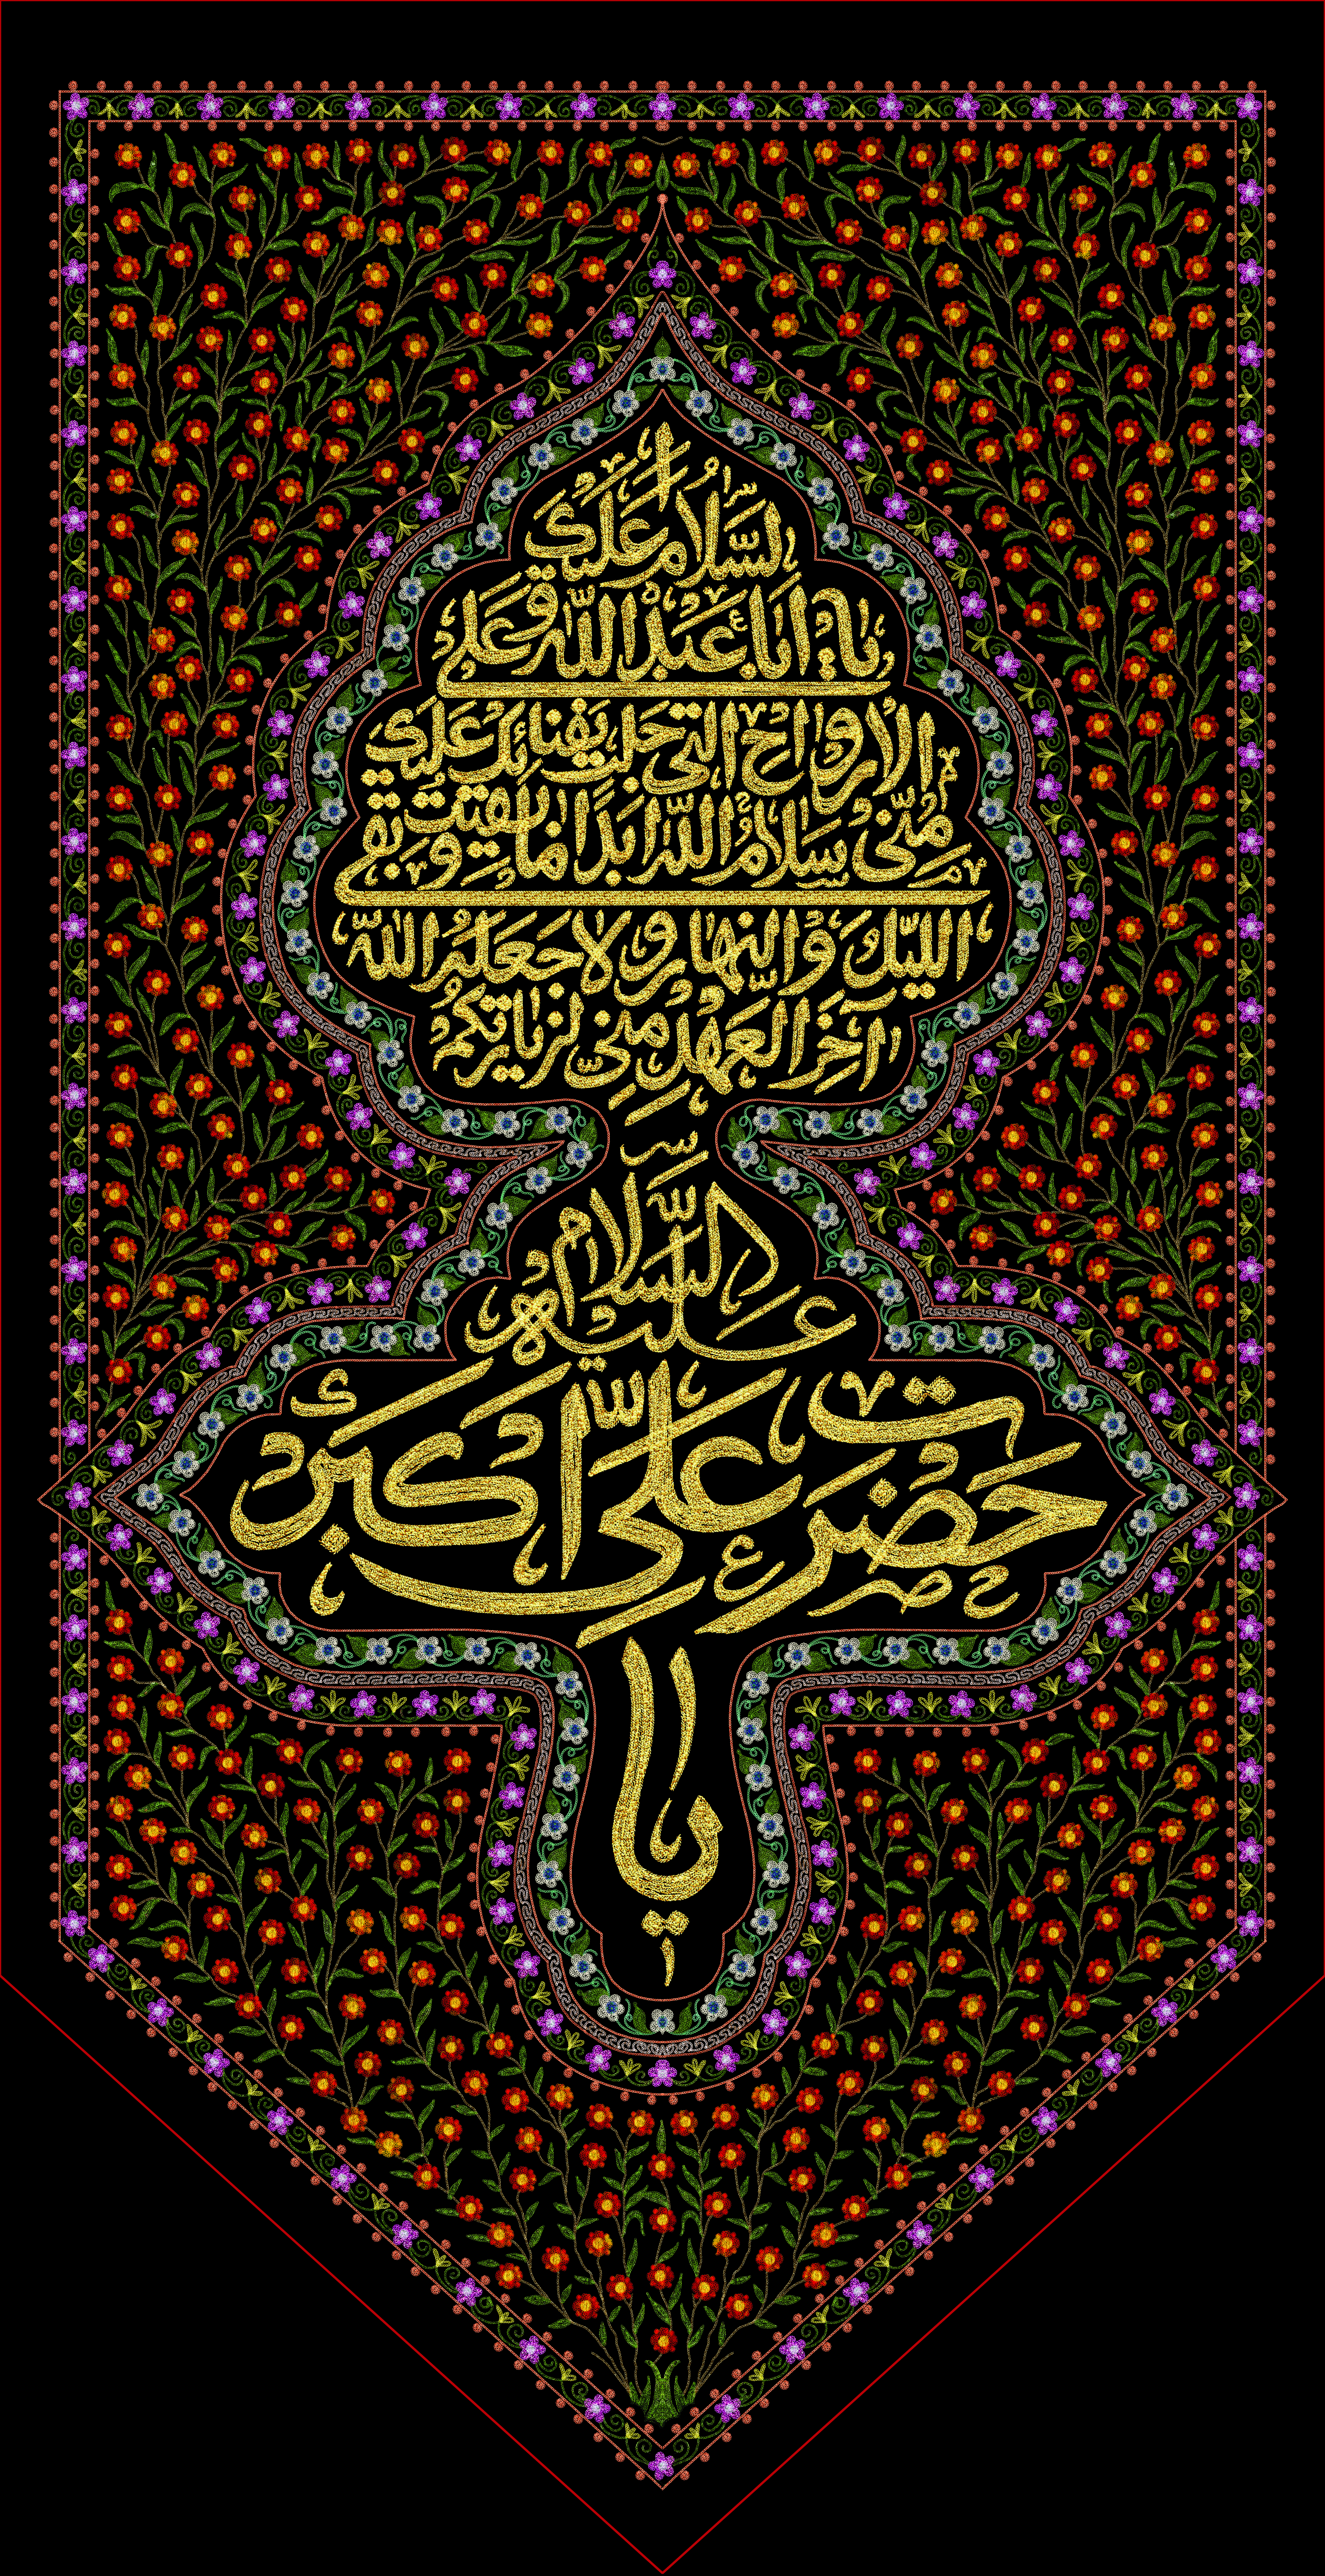 السَّلامُ عَلَيْكَ
يا اَبا عَبْدِ اللهِ وَعَلَى
الْاَرْواحِ الَّتى حَلَّتْ بِفِنائِكَ عَلَيْكَ
مِنّى سَلامُ اللهِ اَبَدًا ما بَقيتُ وَبَقِىَ
اللَّيْلُ وَالنَّهارُ وَلا جَعَلَهُ اللهُ
آخِرَ الْعَهْدِ مِنّى لِزِيارَتِكُمْ
عليه السلام
حضرت علی اکبر
یا